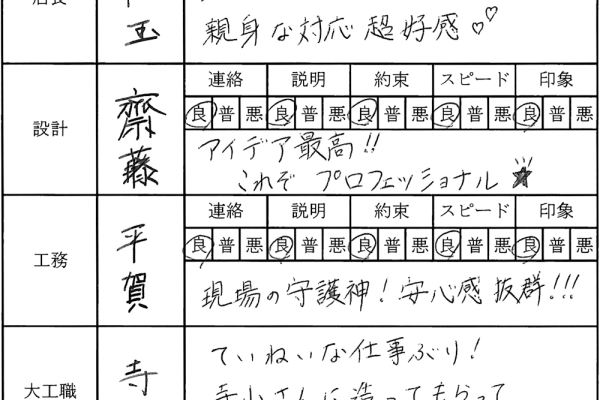 店長
玉
親身な対応 超好感♡♡
設計
齋藤
連絡 説明 約束 スピード 印象
良 普 悪 良 普 悪 良 普 悪 良 普 悪 良 普 悪
アイデア最高!!
これぞ プロフェッショナル★
工務
平賀
連絡 説明 約束 スピード 印象
良 普 悪 良 普 悪 良 普 悪 良 普 悪 良 普 悪
現場の守護神! 安心感 抜群!!!
大工職
寺
ていねいな仕事ぶり!
寺小さんに造ってもらって